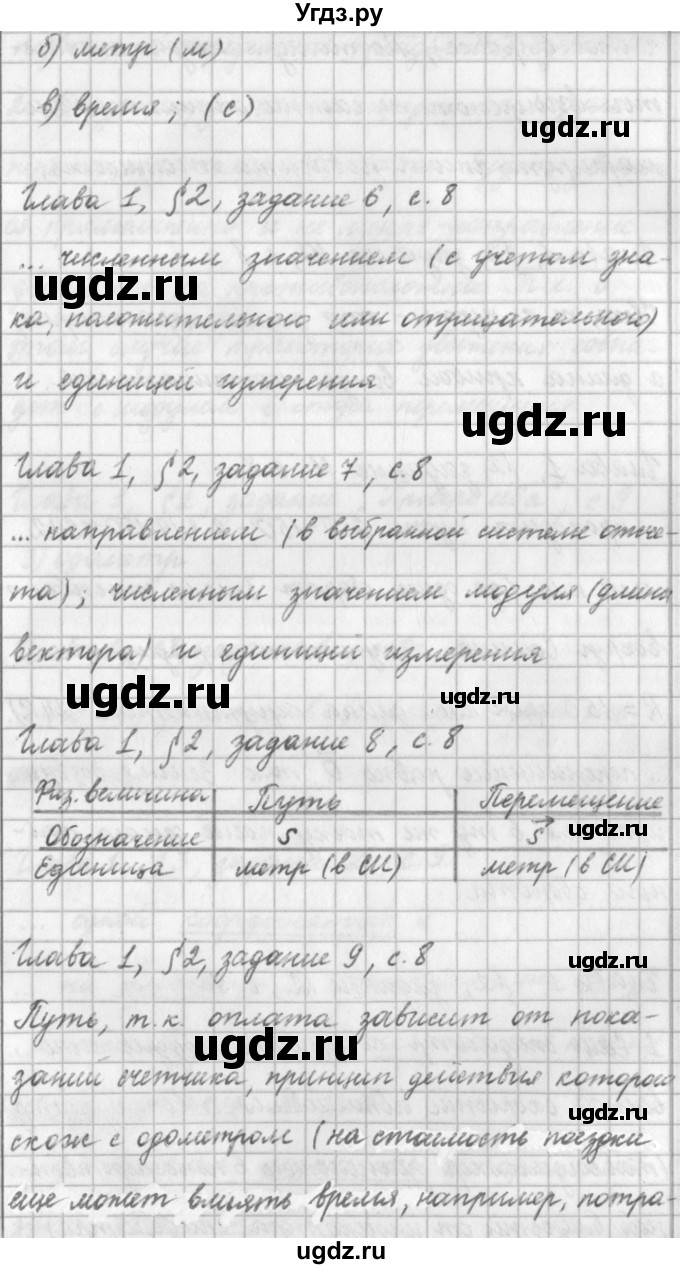 Угдз.ру
б) метр (м)
в) время; (с)
ugdz.ru
Глава 1, §2, задание 6, с. 8
... численным значением (с учетом зна-
ugdz.ru
ка, положительного или отрицательного)
и единицей измерения
ugdz.ru
Глава 1, §2, задание 7, с. 8
... направлением (в выбранной системе отсче-
та); численным значением модуля (длина
вектора) и единицей измерения
ugdz.ru
ugdz.ru
Глава 1, §2, задание 8, с. 8
Физ. величина Путь Перемещение
Обозначение s s⃗
ugdz.ru
Единица метр (в СИ) метр (в СИ)
Глава 1, §2, задание 9, с. 8
ugdz.ru
Путь, т.к. оплата зависит от пока-
ugdz.ru
заний счетчика, принцип действия которого
ugdz.ru
схож с одометром (на стоимость поездки
еще может влиять время, например, потра-
ugdz.ru